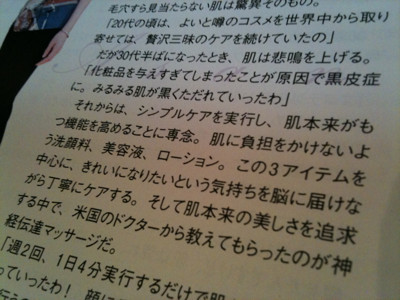 毛穴すら見当たらない肌は驚異そのもの。
「20代の頃は、よいと噂のコスメを世界中から取り
寄せては、贅沢三昧のケアを続けていたの」
だが30代半ばになったとき、肌は悲鳴を上げる。
「化粧品を与えすぎてしまったことが原因で黒皮症
に。みるみる肌が黒くただれていったわ」
それからは、シンプルケアを実行し、肌本来がも
つ機能を高めることに専念。肌に負担をかけないよ
う洗顔料、美容液、ローション。この3アイテムを
中心に、きれいになりたいという気持ちを脳に届けな
がら丁寧にケアする。そして肌本来の美しさを追求
する中で、米国のドクターから教えてもらったのが神
経伝達マッサージだ。
「週2回、1日4分実行するだけで肌
っていったわ!